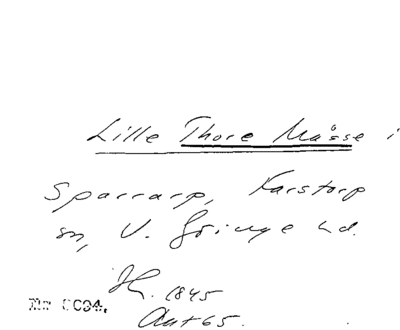 Lille Thore Måsse i
Sparrarp, Farstorp
sn, V. Göinge hd.
1845
Ant 65.